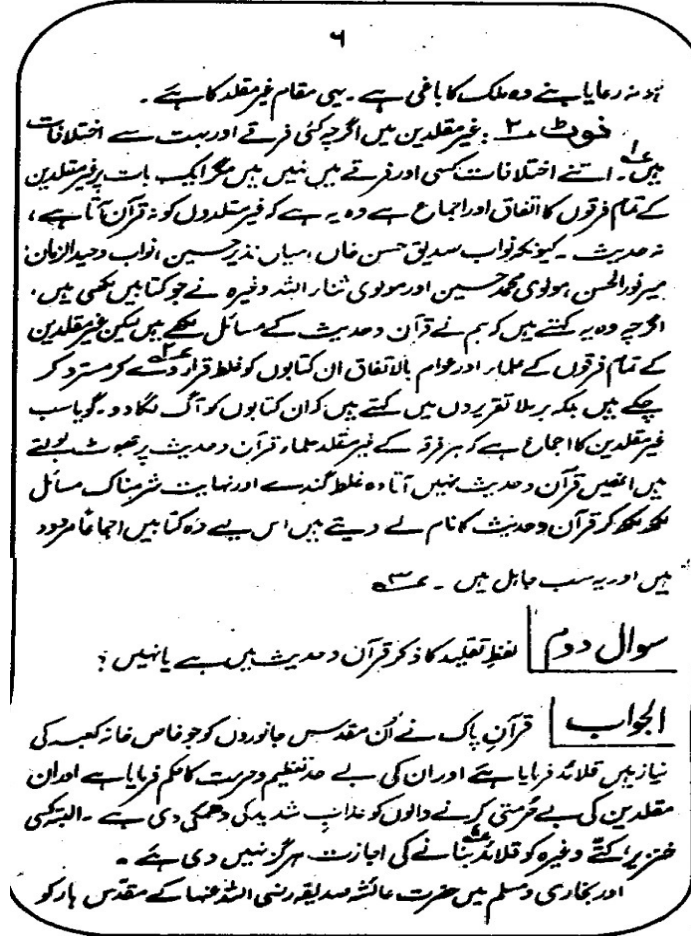 ۶
ہو نہ رعایا بنے وہ ملک کا باغی ہے ۔ یہی مقام غیر مقلد کا ہے ۔
نوٹ ۲ : غیر مقلدین میں اگرچہ کئی فرقے اور بہت سے اختلافات
ہیں ۱؎ ۔ اتنے اختلافات کسی اور فرقے میں نہیں ہیں مگر ایک بات پر غیر مقلدین
کے تمام فرقوں کا اتفاق اور اجماع ہے وہ یہ ہے کہ غیر مقلدوں کو نہ قرآن آتا ہے ،
نہ حدیث ۔ کیونکہ نواب صدیق حسن خاں ، میاں نذیر حسین ، نواب وحید الزمان ،
میر نور الحسن ، مولوی محمد حسین اور مولوی ثناء اللہ وغیرہ نے جو کتابیں لکھی ہیں ،
اگرچہ وہ یہ کہتے ہیں کہ ہم نے قرآن و حدیث کے مسائل لکھے ہیں لیکن غیر مقلدین
کے تمام فرقوں کے علماء اور عوام بالاتفاق ان کتابوں کو غلط قرار دے ۲؎ کر مسترد کر
چکے ہیں بلکہ برملا تقریروں میں کہتے ہیں کہ ان کتابوں کو آگ لگا دو ۔ گویا سب
غیر مقلدین کا اجماع ہے کہ ہر فرقہ کے غیر مقلد علماء قرآن و حدیث پر جھوٹ بولتے
ہیں انھیں قرآن و حدیث نہیں آتا وہ غلط گندے اور نہایت شرمناک مسائل
لکھ لکھ کر قرآن و حدیث کا نام لے دیتے ہیں اس لیے وہ کتابیں اجماعاً مردود
ہیں اور یہ سب جاہل ہیں ۔ ۳؎
سوال دوم | لفظ تقلید کا ذکر قرآن و حدیث میں ہے یا نہیں ؟
الجواب | قرآن پاک نے اُن مقدس جانوروں کو جو خاص خانہ کعبہ کی
نیاز ہیں قلائد فرمایا ہے اور ان کی بے حد تعظیم و حرمت کا حکم فرمایا ہے اور ان
مقلدین کی بے حُرمتی کرنے والوں کو عذابِ شدید کی دھمکی دی ہے ۔ البتہ کسی
خنزیر ، کتّے وغیرہ کو قلائد ۴؎ بنانے کی اجازت ہرگز نہیں دی ہے ۔
اور بخاری و مسلم میں حضرت عائشہ صدیقہ رضی اللہ عنہا کے مقدس ہار کو